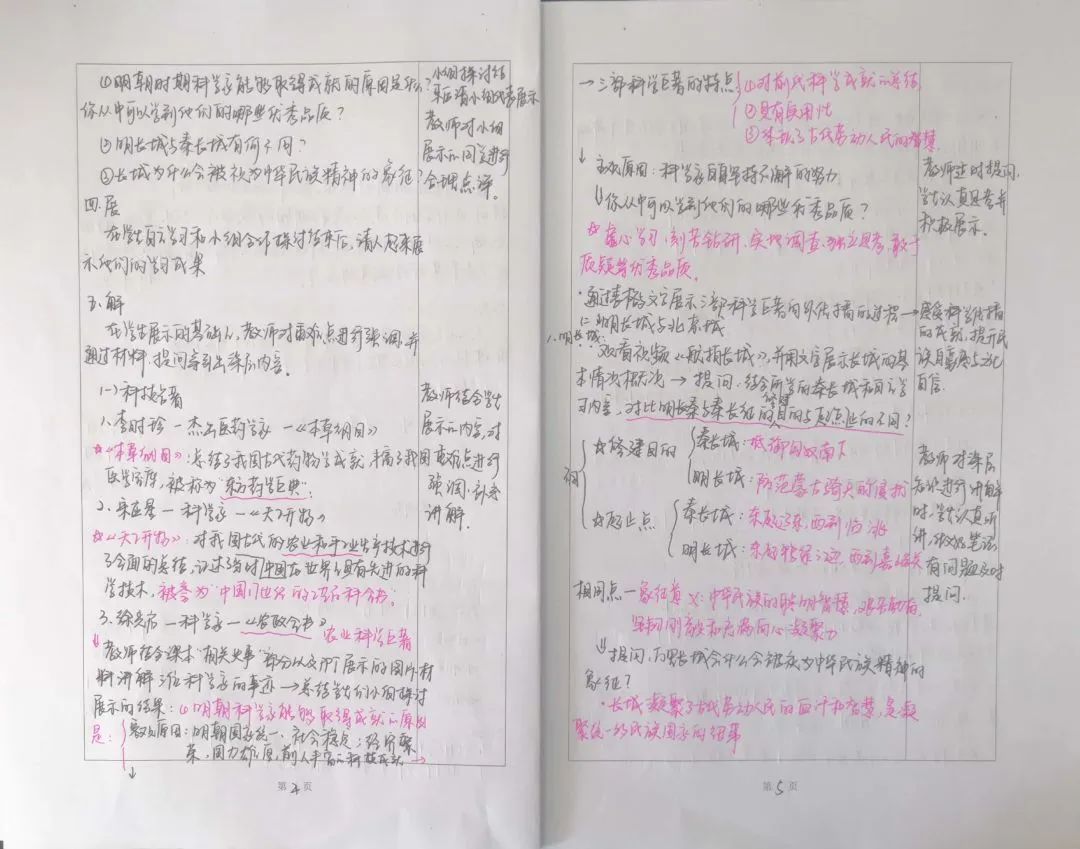 ①明朝时期科学家能够取得成就的原因是什么?
你从中可以学到他们的哪些优秀品质?
②明长城与秦长城有何不同?
③长城为什么会被视为中华民族精神的象征?
小组探讨结
束后请小组代表展示
教师对小组
展示的同学进行
合理点评。
四.展
在学生自主学习和小组合作探讨结束后,请人起来展
示他们的学习成果
五.解
在学生展示的基础上,教师对重难点进行强调,并
通过材料、提问等引出深层内容。
(一)科技名著
1、李时珍—杰出医药学家—《本草纲目》
☆《本草纲目》:总结了我国古代药物学成就,丰富了我国
医学宝库,被称为"东方药学巨典"。
2、宋应星—科学家—《天工开物》
☆《天工开物》:对我国古代的农业和手工业生产技术进行
了全面的总结,记述了当时中国在世界上具有先进的科
学技术,被誉为"中国17世纪的工艺百科全书。"
3、徐光启—科学家—《农政全书》
农业科学巨著
教师结合课本"相关史事"部分以及PPT展示的图片材
料讲解三位科学家的事迹→总结学生们小组探讨
展示的结果:①明朝科学家能够取得成就的原因
是:
客观原因:明朝国家统一、社会稳定;经济繁
荣,国力雄厚,前人丰富的科技成就→
教师结合学生
展示的内容,对
重难点进行
强调、补充
讲解.
第4页
→三部科学巨著的特点
①对前代科学成就的总结
②具有实用性
③体现了古代劳动人民的智慧
主观原因:科学家自身坚持不懈的努力
你从中可以学到他们的哪些优秀品质?
☆虚心学习、刻苦钻研、实地调查、独立思考、敢于
质疑等优秀品质。
教师适时提问,
学生认真思考并
积极展示。
·通过表格文字展示三部科学巨著向外传播的过程→
感受科学传播
的成就,提升民
族自豪感与文化
自信.
(二)明长城与北京城
1、明长城:
观看视频《航拍长城》,并用文字展示长城的基
本情况概况→提问:结合所学的秦长城和自主学
习内容,对比明长城与秦长城的修建目的与起点止的不同?
☆修建目的
秦长城:抵御匈奴南下
明长城:防范蒙古骑兵的侵扰
☆起止点
秦长城:东起辽东,西到临洮
明长城:东起鸭绿江边,西到嘉峪关
教师对深层
知识进行讲解
时,学生认真听
讲,做好笔记,
有问题及时
提问.
相同点—象征意义:中华民族的聪明智慧,艰苦勤奋、
坚韧刚毅和充满向心凝聚力
提问:为什么长城会被视为中华民族精神的
象征?
·长城凝聚了古代劳动人民的血汗和智慧,是凝
聚统一的民族国家的纽带
第5页